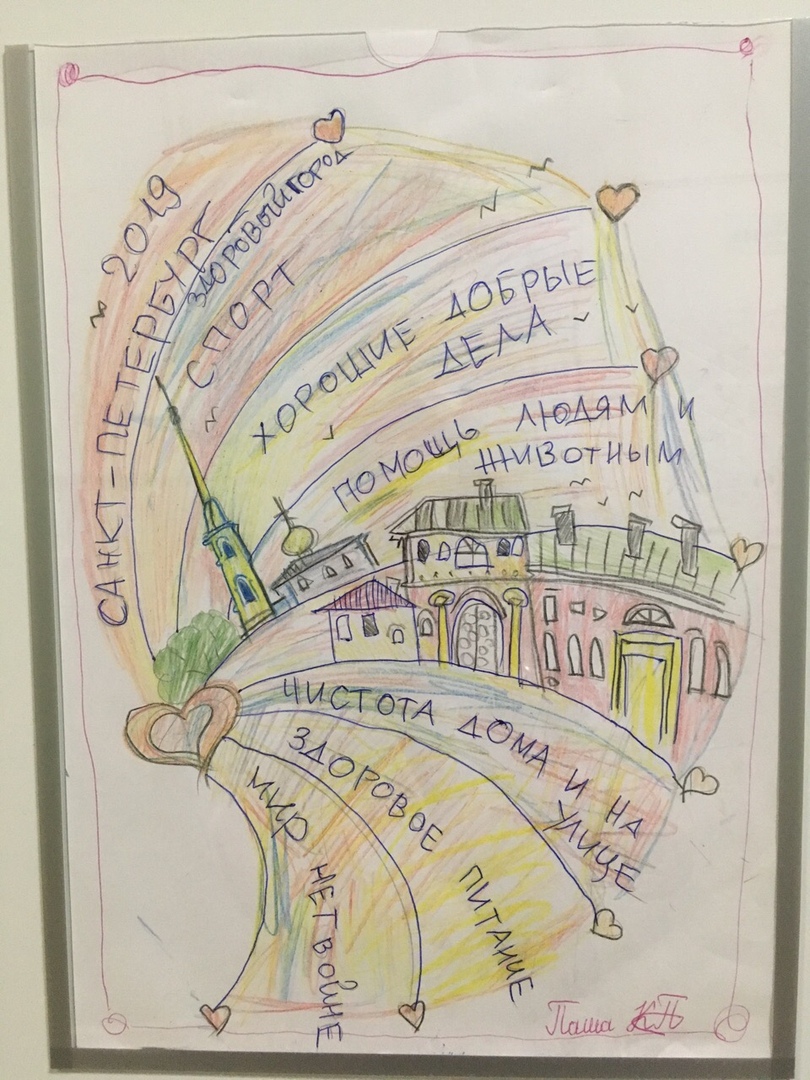 2019
САНКТ-ПЕТЕРБУРГ
ЗДОРОВЫЙ ГОРОД
СПОРТ
ХОРОШИЕ ДОБРЫЕ
ДЕЛА
ПОМОЩЬ ЛЮДЯМ И
ЖИВОТНЫМ
ЧИСТОТА ДОМА И НА
УЛИЦЕ
ЗДОРОВОЕ ПИТАНИЕ
МИР НЕТ ВОЙНЕ
Паша К.П